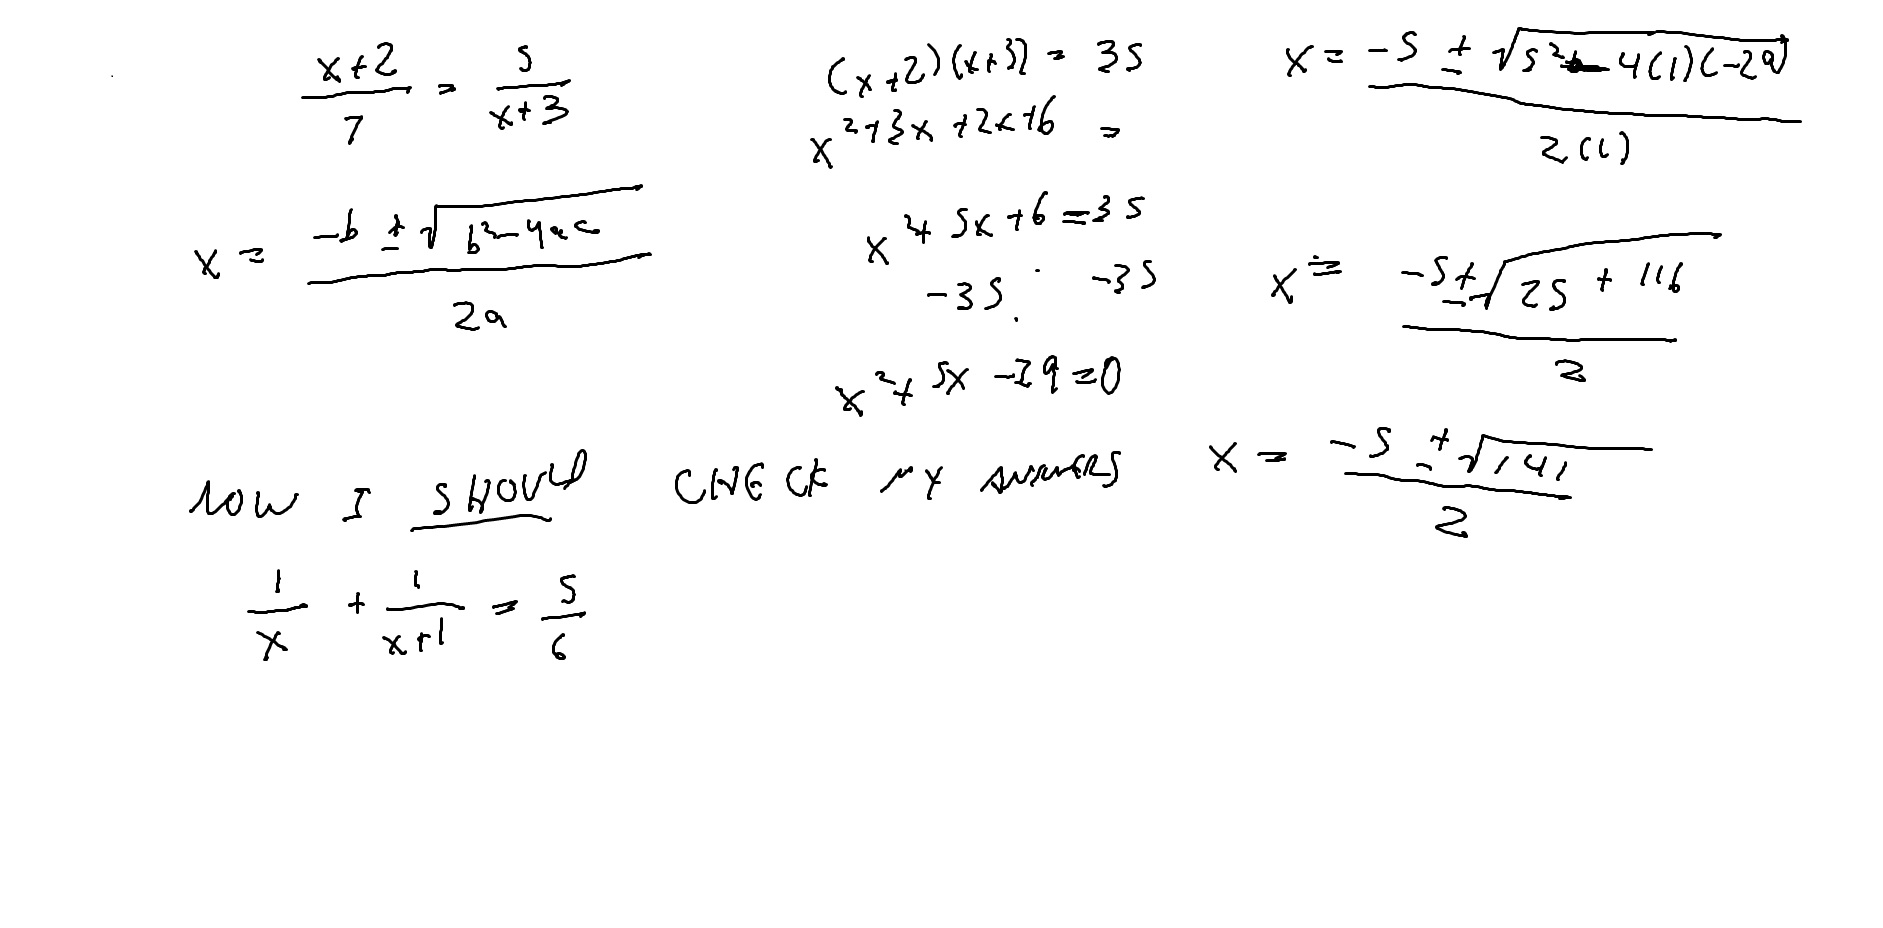 (x+2)/7 = 5/(x+3)
x = (-b ± √(b²-4ac))/2a
(x+2)(x+3) = 35
x²+3x+2x+6 =
x²+5x+6=35
-35 -35
x²+5x-29=0
x = (-5 ± √(5²-4(1)(-29)))/2(1)
x = (-5±√(25+116))/2
x = (-5 ± √141)/2
NOW I SHOULD CHECK MY ANSWERS
1/x + 1/(x+1) = 5/6